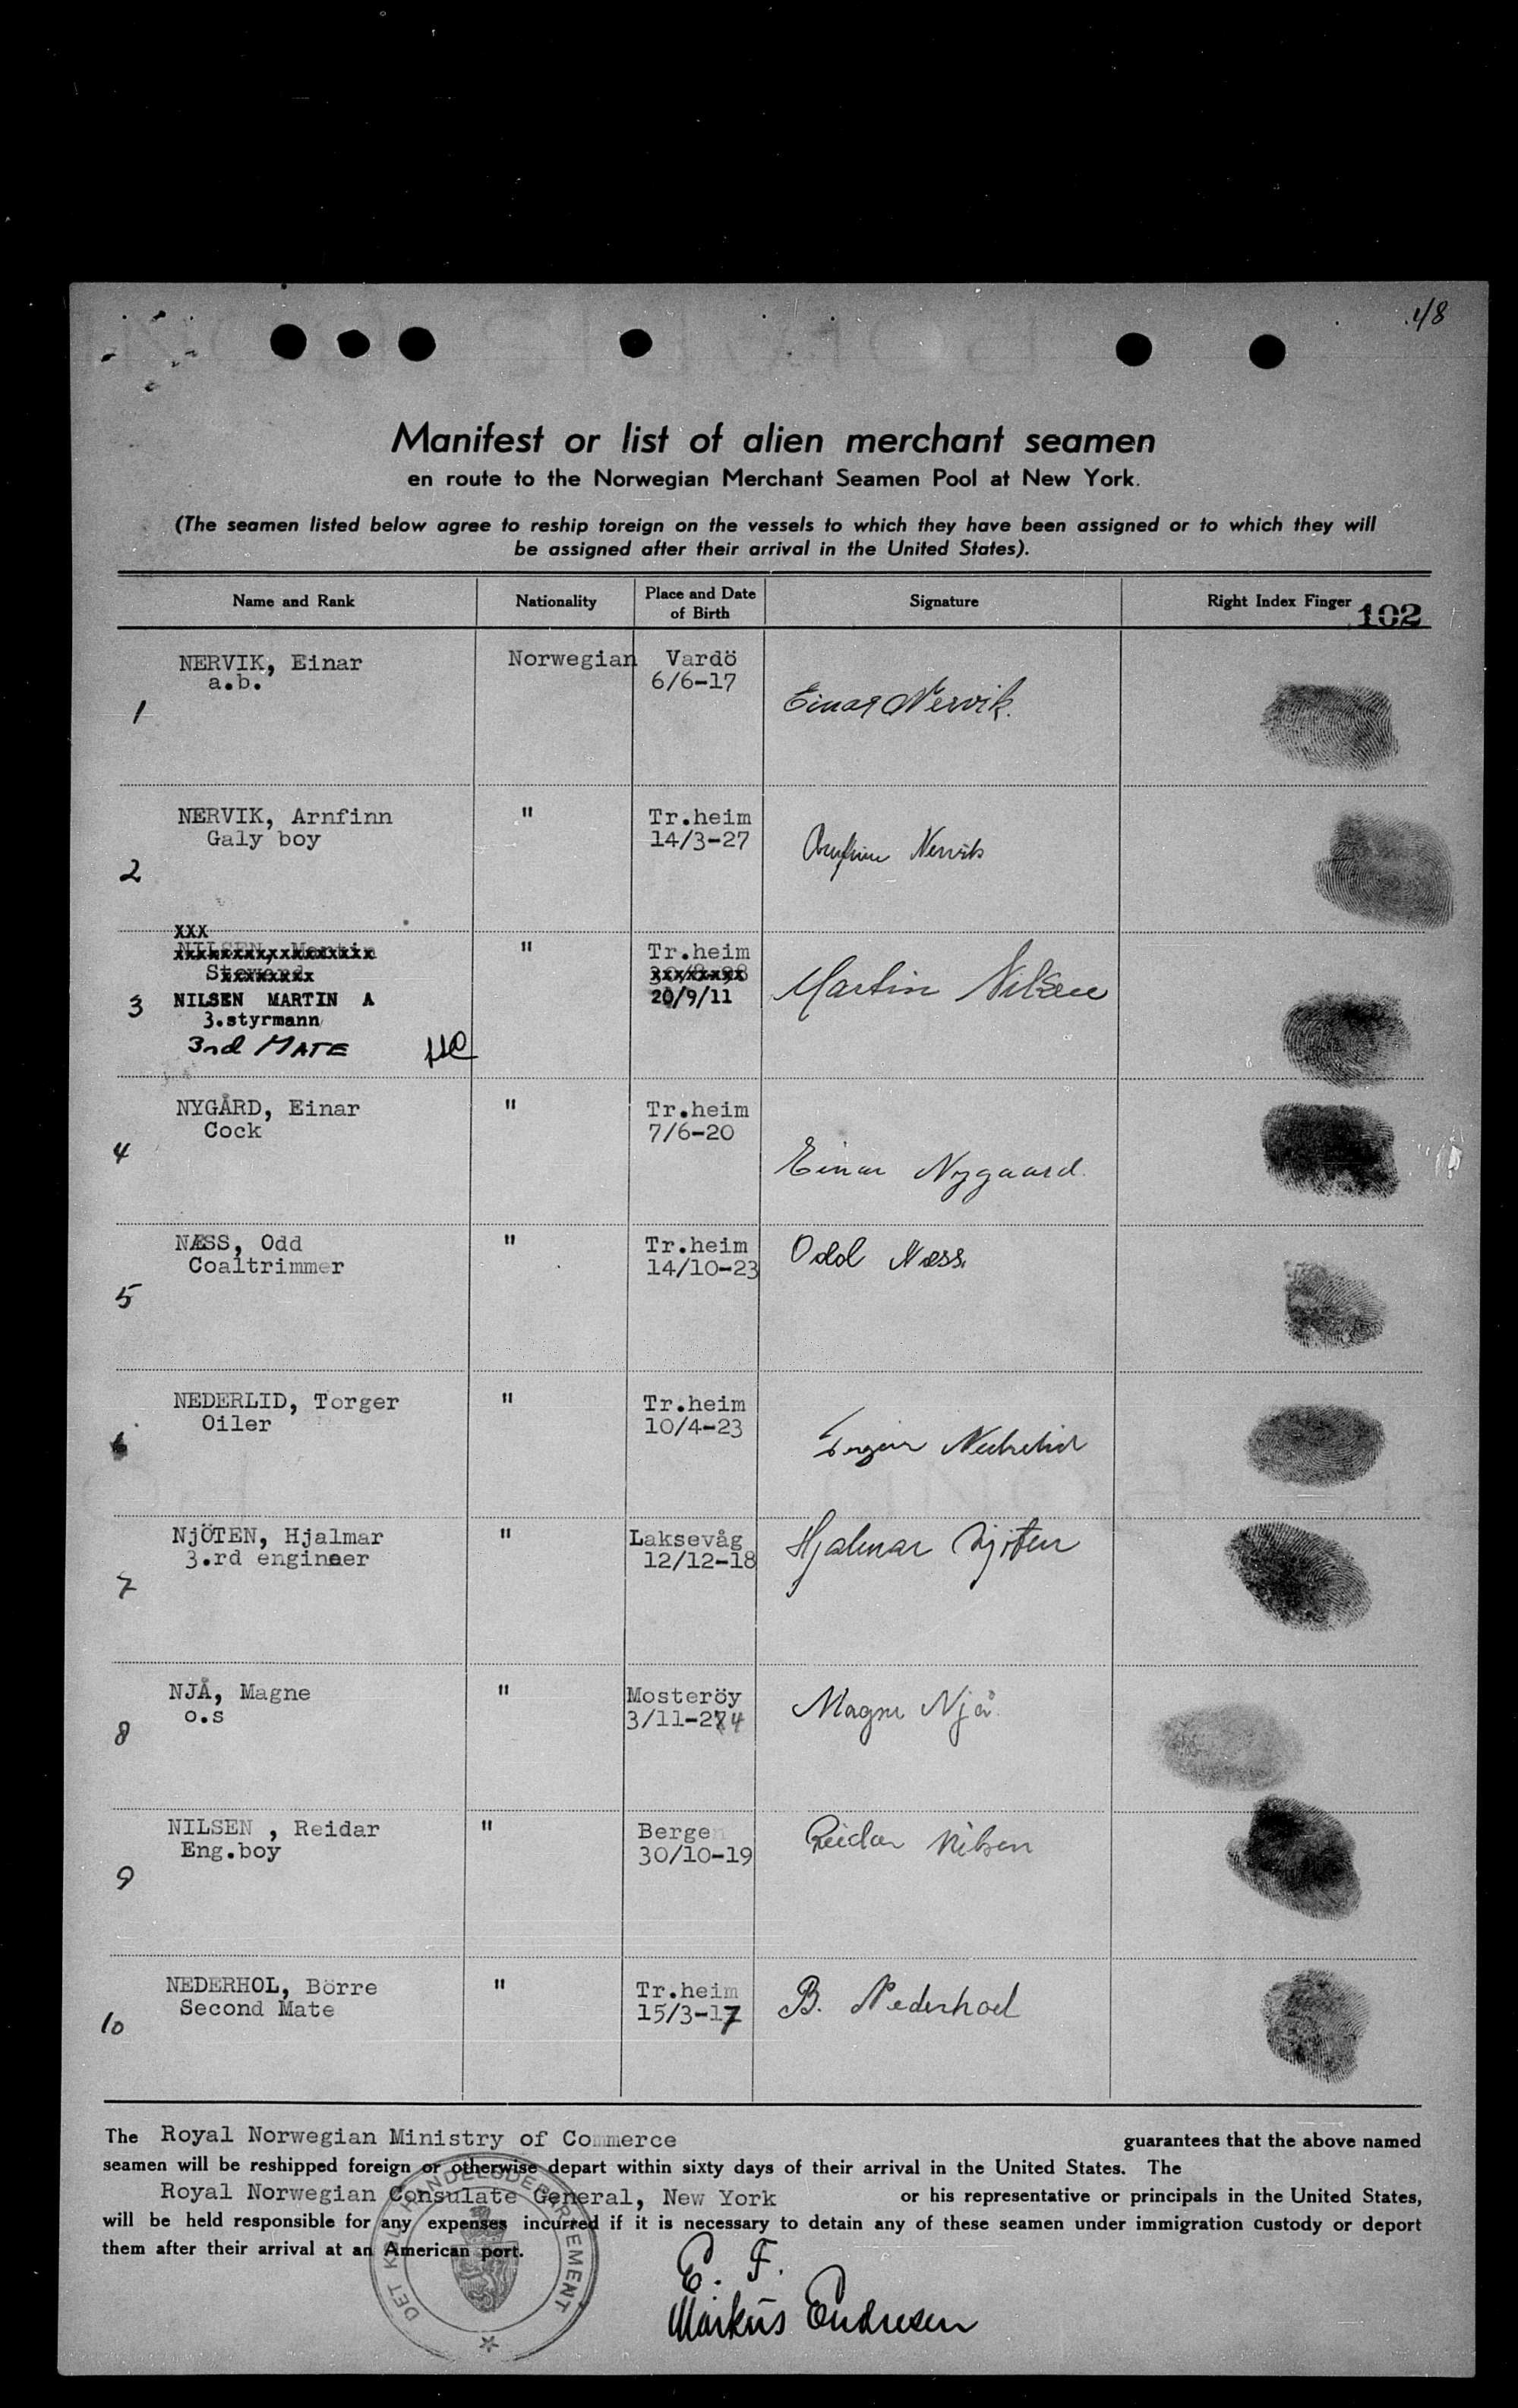 48
Manifest or list of alien merchant seamen
en route to the Norwegian Merchant Seamen Pool at New York.
(The seamen listed below agree to reship foreign on the vessels to which they have been assigned or to which they will
be assigned after their arrival in the United States).
Name and Rank Nationality Place and Date of Birth Signature Right Index Finger 102
NERVIK, Einar Norwegian Vardö
a.b. 6/6-17
1 Einar Nervik.
NERVIK, Arnfinn " Tr.heim
Galy boy 14/3-27
2 Arnfinn Nervik
xxx
NILSEN, Martin " Tr.heim
Steward 30/8-98
3 NILSEN MARTIN A 20/9/11 Martin Nilsen
3.styrmann
3nd MATE
NYGÅRD, Einar " Tr.heim
Cock 7/6-20
4 Einar Nygaard.
NÆSS, Odd " Tr.heim Odd Næss.
Coaltrimmer 14/10-23
5
NEDERLID, Torger " Tr.heim
Oiler 10/4-23
6 Torger Nederlid
NjÖTEN, Hjalmar " Laksevåg Hjalmar Njöten
3.rd engineer 12/12-18
7
NJÅ, Magne " Mosteröy Magne Njå
o.s 3/11-24
8
NILSEN , Reidar " Bergen Reidar Nilsen
Eng.boy 30/10-19
9
NEDERHOL, Börre " Tr.heim B. Nederhoel
Second Mate 15/3-17
10
The Royal Norwegian Ministry of Commerce guarantees that the above named
seamen will be reshipped foreign or otherwise depart within sixty days of their arrival in the United States. The
Royal Norwegian Consulate General, New York or his representative or principals in the United States,
will be held responsible for any expenses incurred if it is necessary to detain any of these seamen under immigration custody or deport
them after their arrival at an American port.
DET KGL. HANDELSDEPARTEMENT
E. F.
Markus Endresen